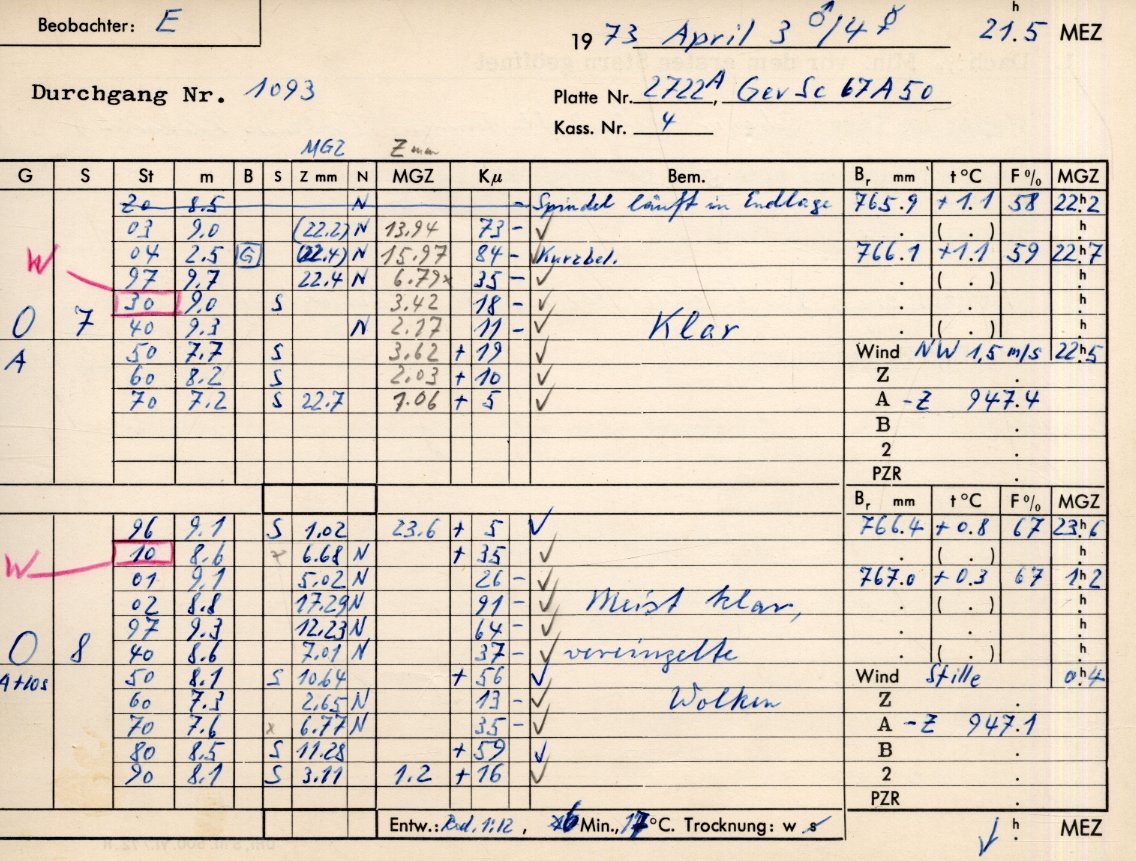 Beobachter: E
1973 April 3 ♂/4 ☿ 21.5 h MEZ
Durchgang Nr. 1093
Platte Nr. 2722A, GevSc 67A50
Kass. Nr. 4
MGZ Z mm
G S St m B S Z mm N MGZ Kμ Bem. Br mm t °C F % MGZ
20 8.5 N - Spindel läuft in Endlage 765.9 +1.1 58 22h2
03 9.0 (22.2) N 13.94 73 - ✓ . ( . ) h
W 04 2.5 G (22.4) N 15.97 84 - Kurzbel. 766.1 +1.1 59 22h7
97 9.7 22.4 N 6.79x 35 - ✓ . ( . ) h
30 9.0 S 3.42 18 - ✓ . . h
O 7 40 9.3 N 2.17 11 - ✓ Klar . ( . ) h
A 50 7.7 S 3.62 + 19 ✓ Wind NW 1,5 m/s 22h5
60 8.2 S 2.03 + 10 ✓ Z .
70 7.2 S 22.7 1.06 + 5 ✓ A -Z 947.4
B .
2 .
PZR .
Br mm t °C F % MGZ
96 9.1 S 1.02 23.6 + 5 ✓ 766.4 +0.8 67 23h6
W 10 8.6 x 6.68 N + 35 ✓ . ( . ) h
01 9.1 5.02 N 26 - ✓ 767.0 +0.3 67 1h2
02 8.8 17.29 N 91 - ✓ Meist klar, . ( . ) h
97 9.3 12.23 N 64 - ✓ . . h
O 8 40 8.6 7.01 N 37 - ✓ vereinzelte . ( . ) h
A+10s 50 8.1 S 10.64 + 56 ✓ Wind Stille 0h4
60 7.3 2.65 N 13 - ✓ Wolken Z .
70 7.6 x 6.77 N 35 - ✓ A -Z 947.1
80 8.5 S 11.28 + 59 ✓ B .
90 8.1 S 3.11 1.2 + 16 ✓ 2 .
PZR .
Entw.: Rod. 1:12, Min., 17 °C. Trocknung: w s ✓ h MEZ